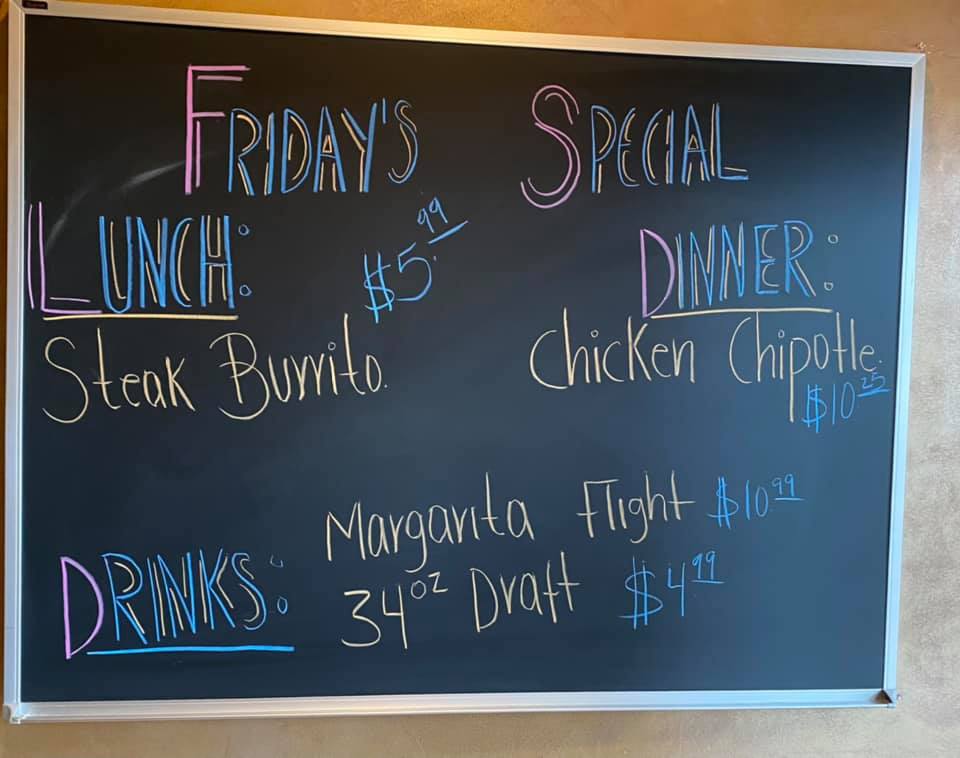 FRIDAY'S SPECIAL
LUNCH: $5.99
Steak Burrito.
DINNER:
Chicken Chipotle.
$10.25
DRINKS:
Margarita Flight $10.99
34oz Draft $4.99